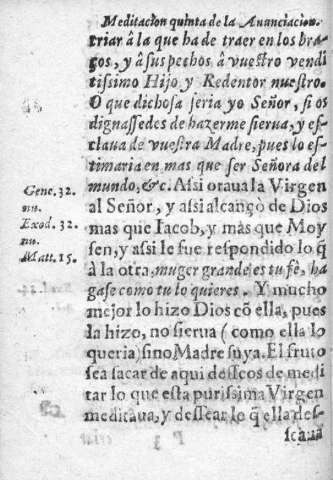 Meditacion quinta de la Anunciacion.
triar â la que ha de traer en los bra-
ços, y â sus pechos â vuestro vendi
tissimo Hijo y Redentor nuestro.
O que dichosa seria yo Señor, si os
dignassedes de hazerme sierua, y es-
claua de vuestra Madre, pues lo es-
timaria en mas que ser Señora del
mundo, &c. Assi oraua la Virgen
al Señor, y assi alcançò de Dios
mas que Iacob, y mas que Moy
sen, y assi le fue respondido lo q̃
à la otra, muger grande es tu fè, ha
gase como tu lo quieres. Y mucho
mejor lo hizo Dios cõ ella, pues
la hizo, no sierua (como ella lo
queria) sino Madre suya. El fruto
sea sacar de aqui desseos de medi
tar lo que esta purissima Virgen
meditaua, y dessear lo q̃ ella des-
seaua
Gene. 32.
nu.
Exod. 32.
nu.
Matt. 15.